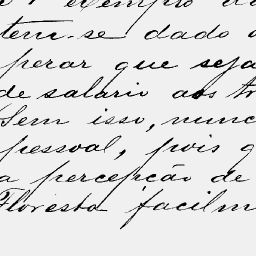 exemplo d
tem-se dado a
perar que seja
de salario aos tr
Sem isso, nunc
pessoal, pois q
a percepção de
Floresta facilm